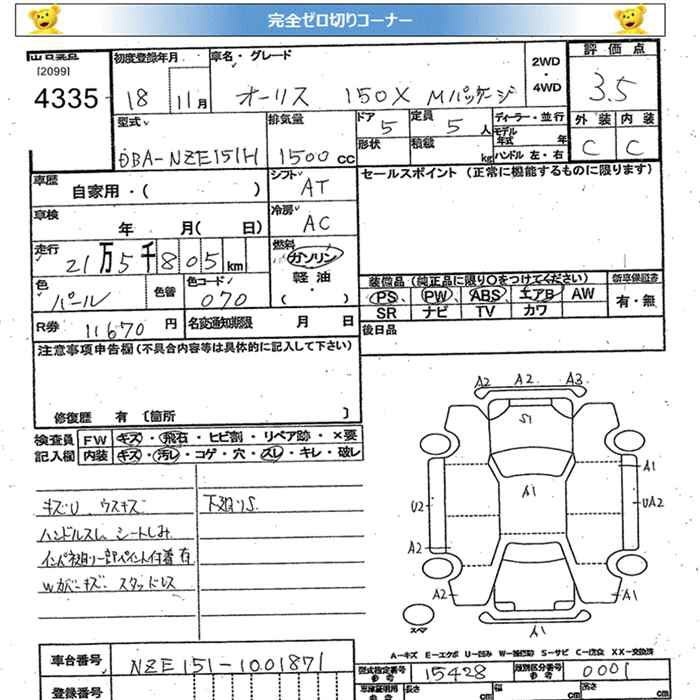 完全ゼロ切りコーナー
[2099]
4335
初度登録年月
18 11月
車名・グレード
オーリス 150X Mパッケージ
2WD
・
4WD
評価点
3.5
外装 内装
C C
型式
DBA-NZE151H
排気量
1500 CC
ドア 5
形状
定員 5 人
積載 kg
ディーラー・並行
モデル年式 年
ハンドル 左・右
車歴 自家用・( )
シフト AT
セールスポイント (正常に機能するものに限ります)
車検 年 月( 日)
冷房 AC
走行 21万5千805km
燃料
ガソリン
軽油
( ・ )
色 パール
色替
色コード 070
装備品 (純正品に限り〇をつけてください)
新車保証書
PS、 PW、 ABS エアB AW
有・無
SR ナビ TV カワ
R券 11670 円
名変通知期限 月 日
後日品
注意事項申告欄(不具合内容等は具体的に記入して下さい)
修復歴 有 [箇所 ]
検査員 FW キズ・飛石・ヒビ割・リペア跡・×要
記入欄 内装 キズ・汚レ・コゲ・穴・スレ・キレ・破レ
キズU ウスキズ
下廻りS
ハンドルスレ シートしみ
インパネ廻り一部ペイント付着有
Wカバーキズ スタッドレス
A2 A2 A3
S1
A1
A1
U2
UA2
A2
A2
A2
A1
スペア
A-キズ E-エクボ U-凹み W-補修跡 S-サビ C-腐食 XX-交換済
車台番号 NZE151-1001871
型式指定番号 参考 15428
類別区分番号 参考 0001
登録番号
車庫証明用 参考
長さ cm
幅 cm
高さ cm